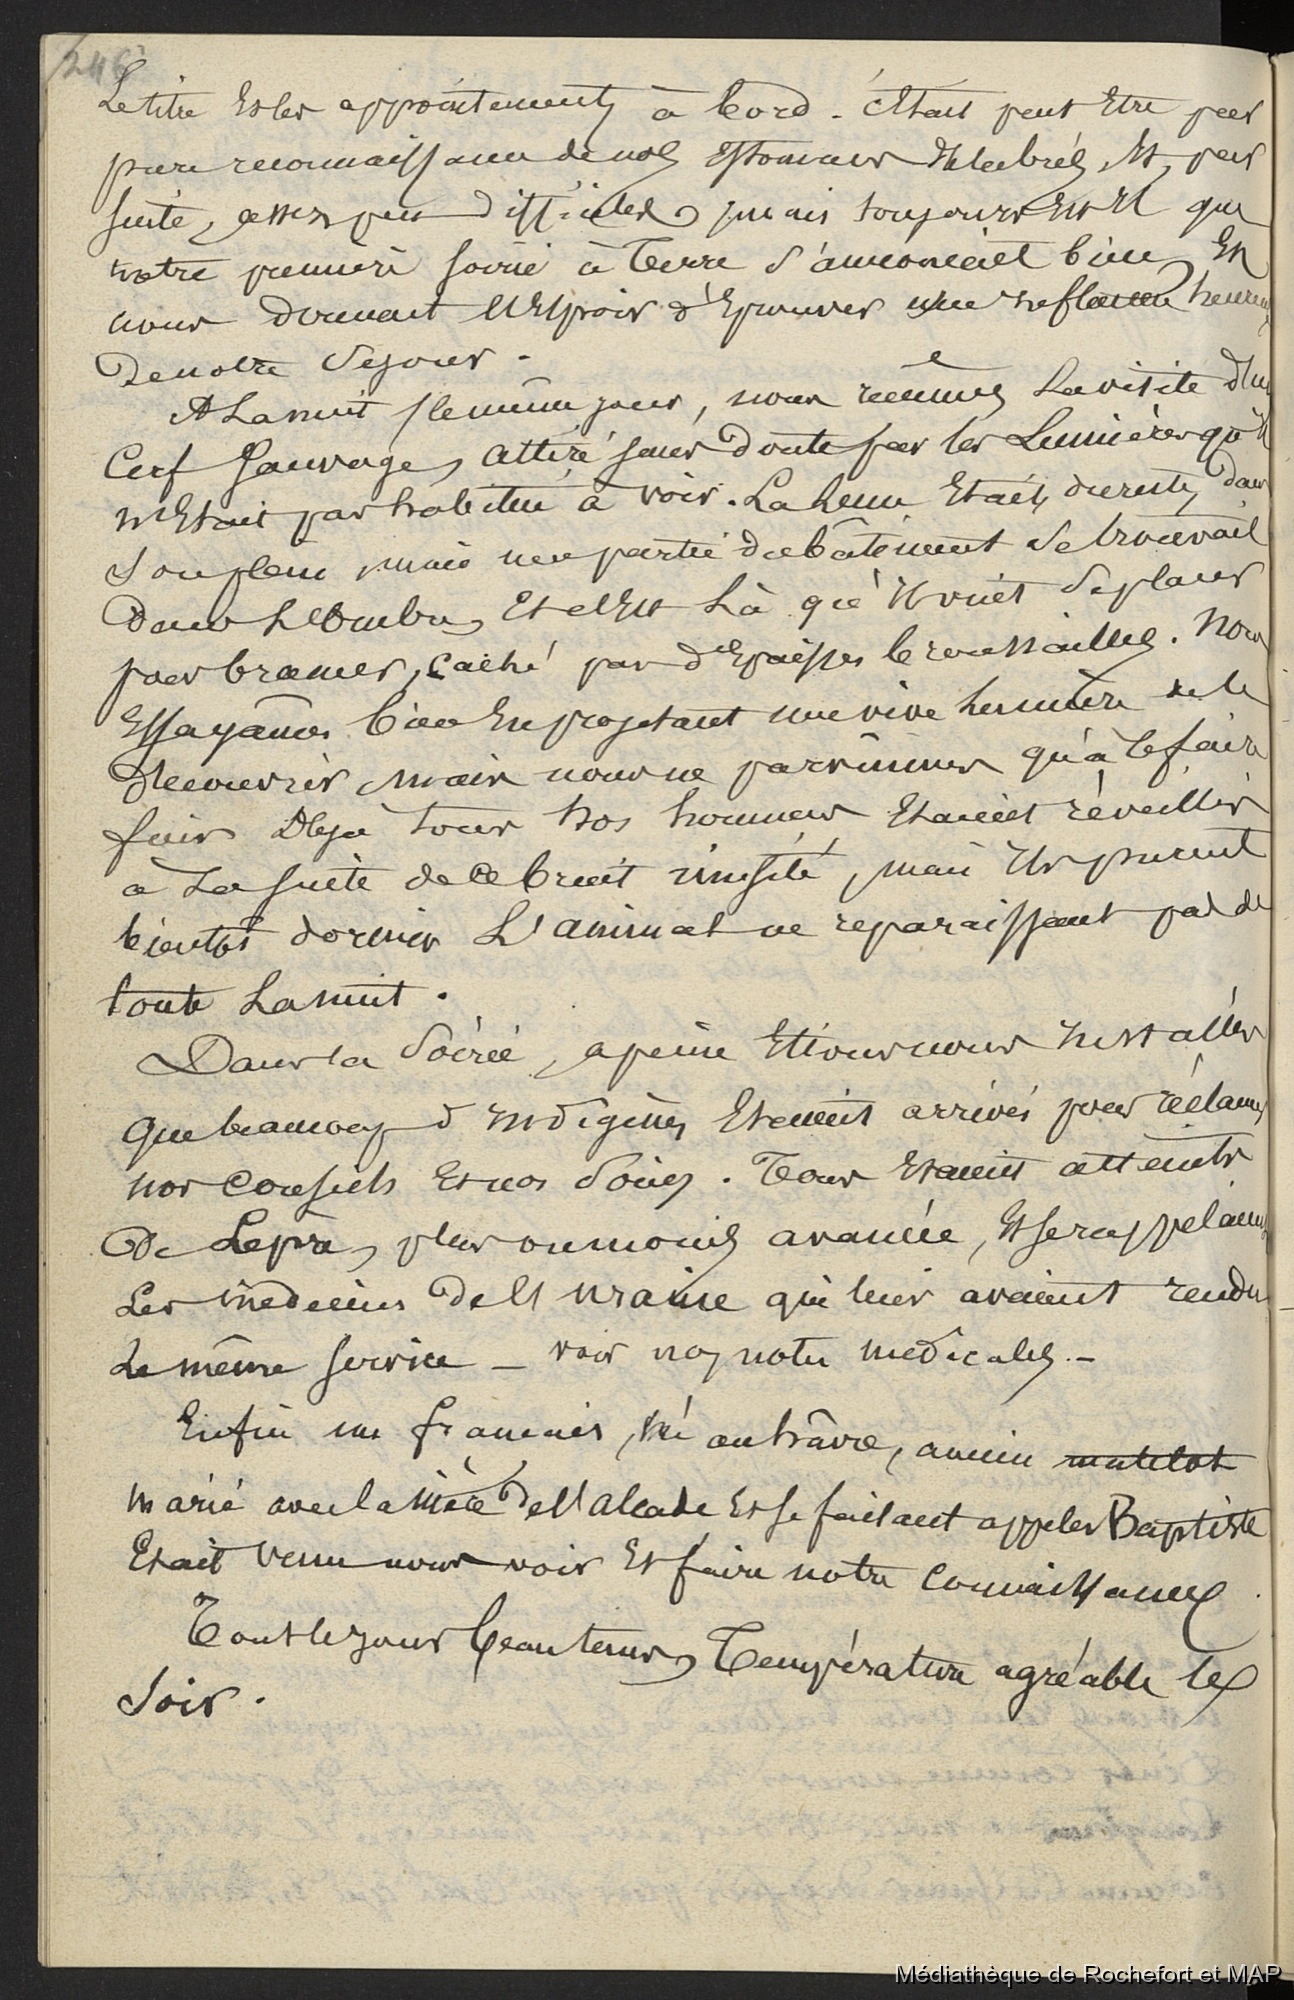 246
Le titre et les appointements à bord. C'était peut être par
pure reconnaissance de nos estomacs délabrés, et, par
suite, assez peu difficiles, mais toujours est il que
notre première soirée à Terre s'annoncait bien, en
nous donnant l'espoir d'éprouver une influence heureuse
de notre séjour.
A la nuit, le même jour, nous reçûmes la visite d'un
Cerf sauvage, attiré sans doute par les lumières qu'il
n'était pas habitué à voir. La lune était, du reste, dans
son plein, mais une partie du bâtiment se trouvait
dans l'ombre, et c'est là qu'il vint se placer
pour bramer, caché par d'épaisses broussailles. Nous
essayâmes bien en projetant une vive lumière de le
découvrir, mais nous ne parvînmes qu'à le faire
fuir. Déjà tous nos hommes étaient réveillés
à la suite de ce bruit inusité, mais ils purent
bientôt dormir L'animal ne reparaissant pas de
toute la nuit.
Dans la soirée, à peine étions nous installés
que beaucoup d'indigènes étaient arrivés pour réclamer
nos conseils et nos soins. Tous étaient atteints
de Lèpre, plus ou moins avancée, et se rappelaient
les médecins de l'Ukraine qui leur avaient rendu
le même service – voir nos notes médicales. –
Enfin un français, né au hâvre, ancien matelot
marié avec la mère de l'alcade et se faisant appeler Baptiste
était venu nous voir et faire notre connaissance.
Tout le jour beau temps, Température agréable le
soir.
Médiathèque de Rochefort et MAP